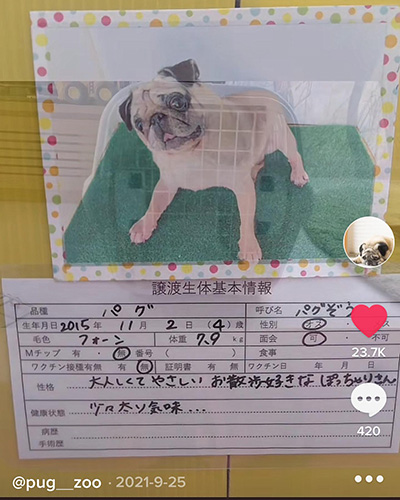 譲渡生体基本情報
品種 パグ 呼び名 パグぞう
生年月日 2015年 11月 2日 (4)歳 性別 オス・メス
毛色 フォーン 体重 7.9 kg 面会 可・不可
Mチップ 有・無 番号( ) 食事
ワクチン接種有無 有 無 証明書 有 無 ワクチン日 年 月 日
性格 大人しくてやさしい お散歩好きな ぽっちゃりさん
健康状態 少々太り気味...
病歴
手術歴
23.7K
420
@pug__zoo · 2021-9-25